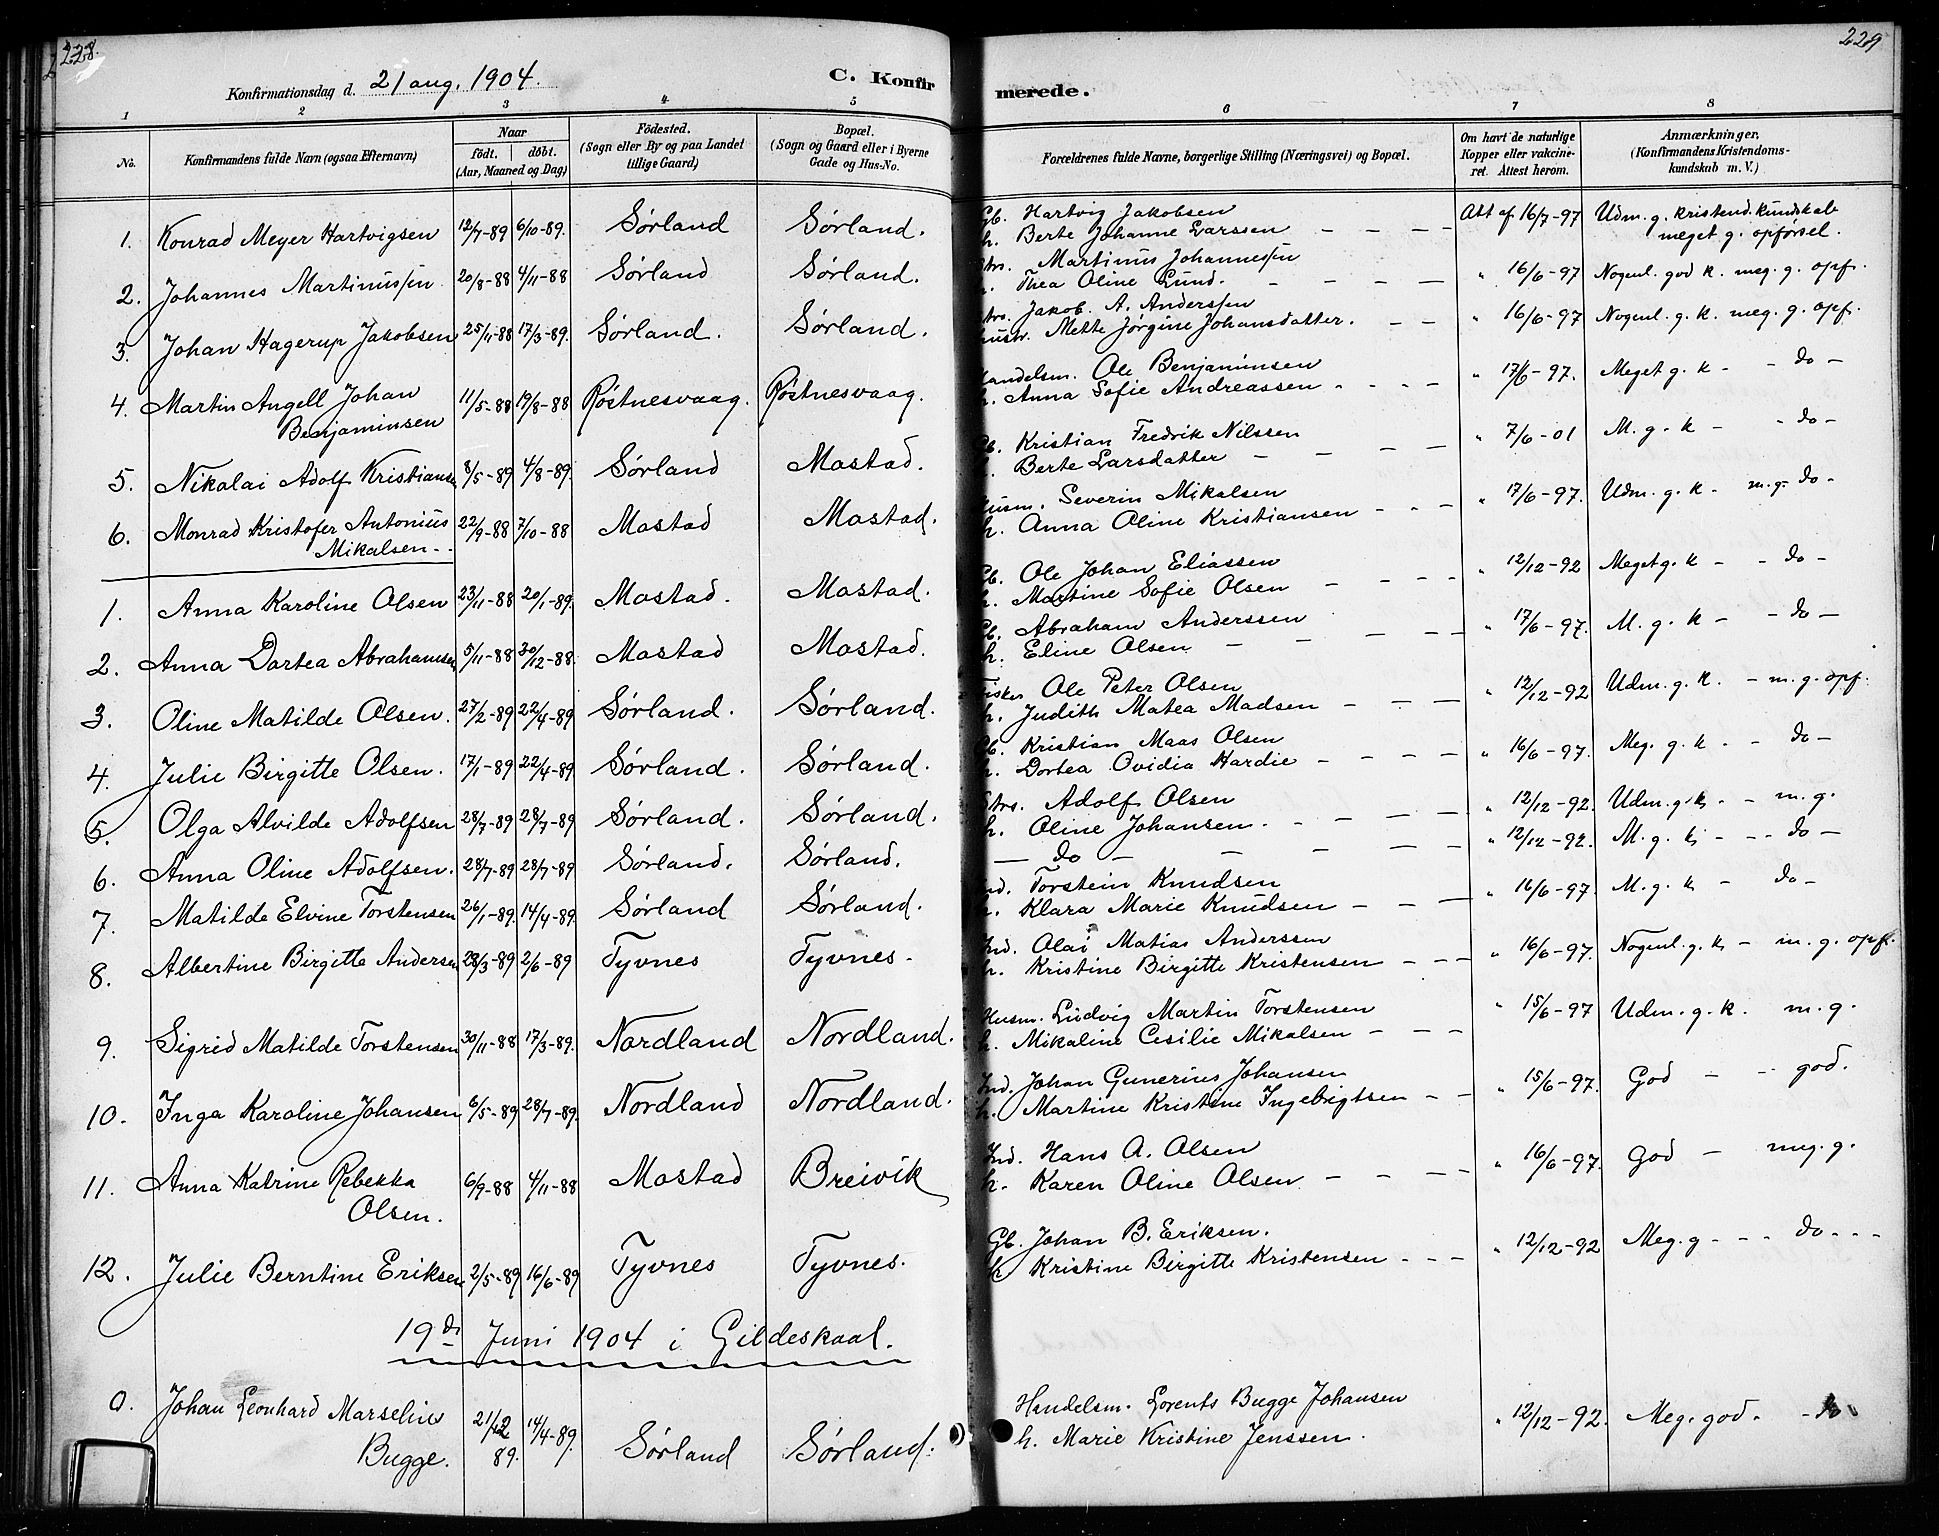 228. 229
Konfirmationsdag d. 21 aug. 1904. C. Konfirmerede.
1 2 3 4 5 6 7 8
No. Konfirmandens fulde Navn (ogsaa Efternavn) Naar født. døbt. (Aar, Maaned og Dag) Fødested. (Sogn eller By og paa Landet tillige Gaard) Bopæl. (Sogn og Gaard eller i Byerne Gade og Hus-No. Forældrenes fulde Navne, borgerlige Stilling (Næringsvei) og Bopæl. Om havt de naturlige Kopper eller vakcineret. Attest herom. Anmærkninger, (Konfirmandens Kristendomskundskab m. V.)
1. Konrad Meyer Hartvigsen 12/7-89 6/10-89. Sørland Sørland. Gb. Hartvig Jakobsen Att af 16/7-97 Udm. g. kristend. kundskab
h. Berte Johanne Larssen — — — meget g. opførsel.
2. Johannes Martinussen 20/8-88 4/11-88 Sørland Sørland. Martinus Johannessen
Thea Oline Lund. - - - - " 16/6-97 Nogenl. god k. meg. g. opf.
3. Johan Hagerup Jakobsen 25/11-88 17/3-89. Sørland. Sørland. Jakob. A. Anderssen
Mette Jørgine Johansdatter. - - " 16/6-97 Nogenl. g. k. meg. g. opf.
4. Martin Angell Johan 11/5-88 19/8-88 Røstnesvaag. Røstnesvaag. Handelsm. Ole Benjaminsen
Benjaminsen h. Anna Sofie Andreassen - - - - " 17/6-97. Meget g. k - - do -
5. Nikolai Adolf Kristiansen 8/5-89 4/8-89. Sørland Mostad. Gb. Kristian Fredrik Nilssen
h. Berte Larsdatter - - - - " 7/6-01 M. g. k - - do -
6. Monrad Kristofer Antonius 22/9-88 7/10-88 Mostad Mostad. Husm. Severin Mikalsen
Mikalsen - - h. Anna Oline Kristiansen - - - " 17/6-97. Udm. g. k. m. g. do -
1. Anna Karoline Olsen 23/11-88 20/1-89. Mostad. Mostad. Gb. Ole Johan Eliassen
h. Martine Sofie Olsen - - - - " 12/12-92 Meget g. k - - do -
2. Anna Dortea Abrahamsen 5/11-88 30/12-88. Mostad Mostad. Gb. Abraham Anderssen
h. Eline Olsen - - - - " 17/6-97. M. g. k - - do -
3. Oline Matilde Olsen. 27/2-89 22/4-89 Sørland. Sørland. Fisker Ole Peter Olsen
h. Judith Matea Madsen - - - " 12/12-92 Udm. g. k. - m. g. opf.
4. Julie Birgitte Olsen. 17/1-89 22/4-89 Sørland. Sørland. Gb. Kristian Maas Olsen
h. Dortea Ovidia Hardie - - - - " 16/6-97. Meg. g. k. - do -
5. Olga Alvilde Adolfsen 28/7-89 28/7-89 Sørland. Sørland. Strs. Adolf Olsen
h. Oline Johansen - - - - " 12/12-92. Udm. g. k. - m. g.
6. Anna Oline Adolfsen. 28/7-89 28/7-89 Sørland. Sørland. — do — - - - " 12/12-92. M. g. k - - - do -
7. Matilde Elvine Torstensen 26/1-89. 14/4-89. Sørland Sørland. Ind. Torstein Knudsen
h. Klara Marie Knudsen - - - " 16/6-97. M. g. k - do -
8. Albertine Birgitte Andersen 28/3-89 2/6-89 Tyvnes Tyvnes. Ind. Olai Matias Anderssen
h. Kristine Birgitte Kristensen - - - " 16/6-97. Nogenl. g. k - m. g. opf.
9. Sigrid Matilde Torstensen 30/11-88 17/3-89. Nordland Nordland. Husm. Ludvig Martin Torstensen
h. Mikaline Cesilie Mikalsen - - - " 15/6-97 Udm. g. k. m. g.
10. Inga Karoline Johansen 6/5-89 28/7-89. Nordland Nordland. Ind. Johan Gunerius Johansen
h. Martine Kristine Ingebrigtsen - - " 15/6-97. God - - god.
11. Anna Katrine Rebekka 6/9-88 4/11-88 Mostad Breivik Ind. Hans A. Olsen
Olsen. h. Karen Oline Olsen. - - - - " 16/6-97. God - meg. g.
12. Julie Berntine Eriksen 2/5-89 16/6-89 Tyvnes Tyvnes. Gb. Johan B. Eriksen.
h Kristine Birgitte Kristensen - - - " 12/12-92 Meg. g - - - do - - -
19de Juni 1904 i Gildeskaal.
0. Johan Leonhard Marselius 21/12 89. 14/4-89. Sørland Sørland. Handelsm. Lorents Bugge Johansen
Bugge. h. Marie Kristine Jenssen. " 12/12-92. Meg. god. - do